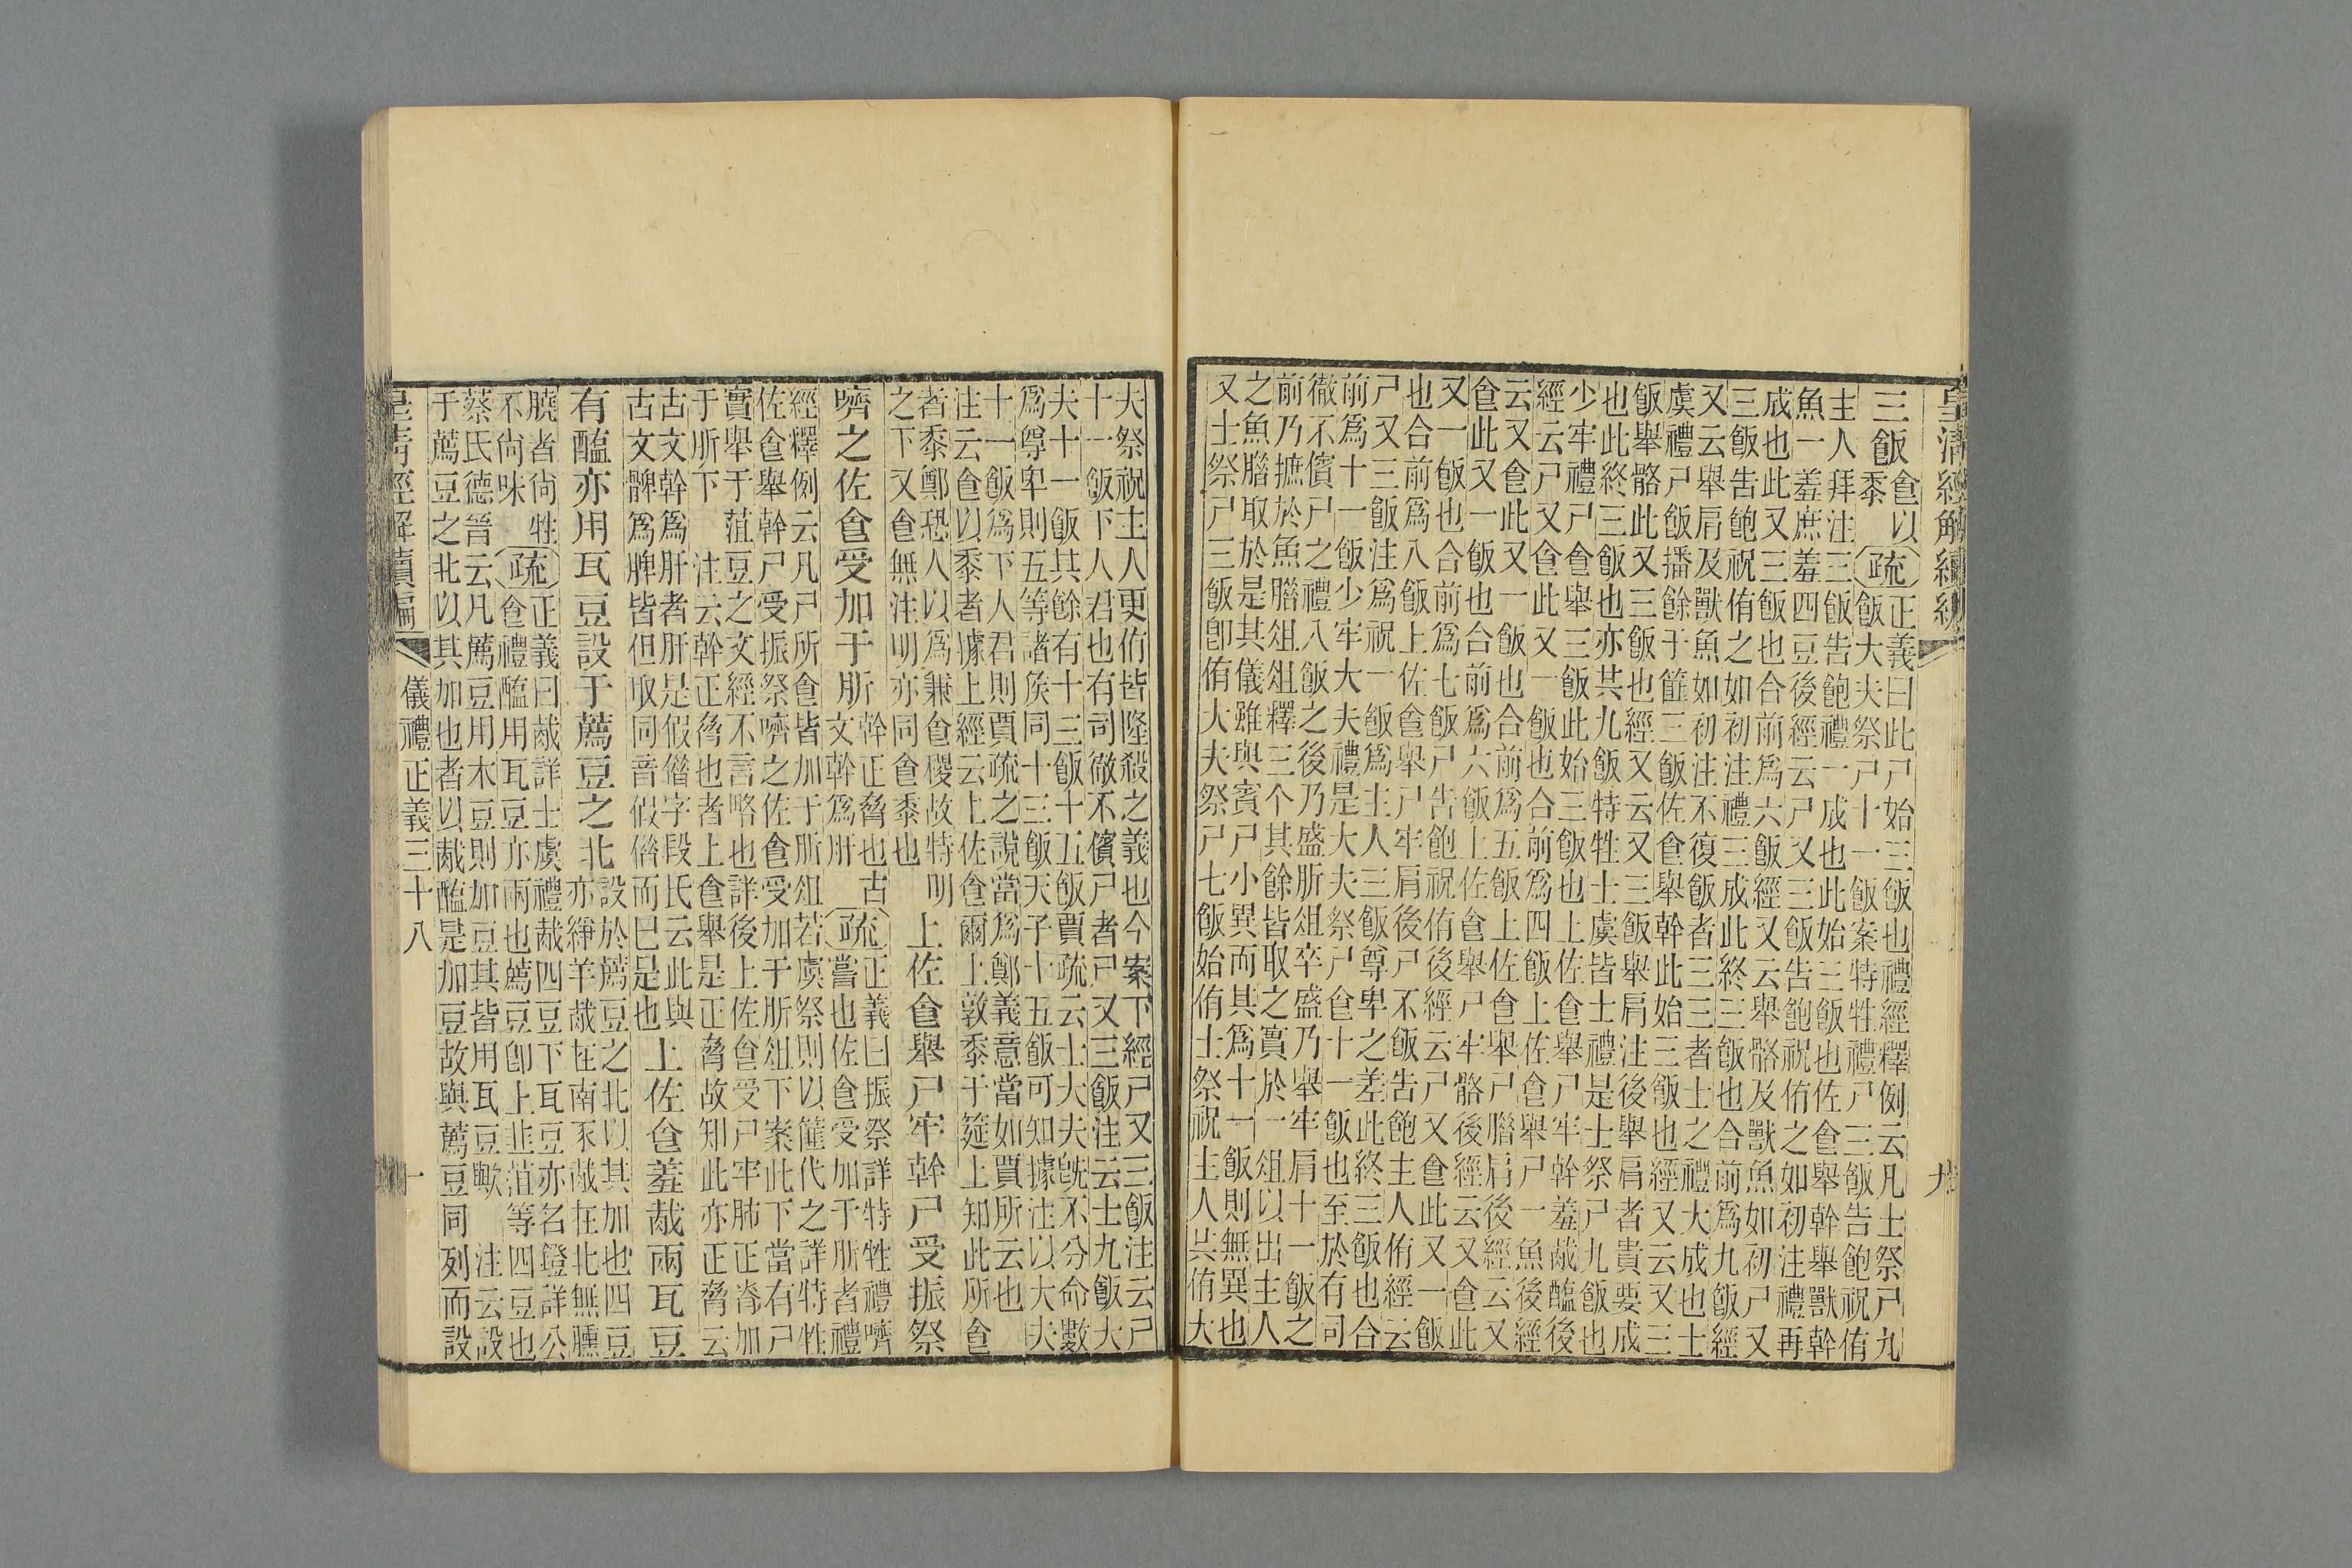 皇清經解續編
九
三飯
食以
黍
疏
正義曰此尸始三飯也禮經釋例云凡士祭尸九
飯大夫祭尸十一飯案特牲禮尸三飯告飽祝侑
主人拜注三飯告飽禮一成也此始三飯也佐食舉幹舉獸幹
魚一羞庶羞四豆後經云尸又三飯告飽祝侑之如初注禮再
成也此又三飯也合前爲六飯經又云舉骼及獸魚如初尸又
三飯告飽祝侑之如初注禮三成此終三飯也合前爲九飯經
又云舉肩及獸魚如初注不復飯者三三者士之禮大成也士
虞禮尸飯播餘于篚三飯佐食舉幹此始三飯也經又云又三
飯舉骼此又三飯也經又云又三飯舉肩注後舉肩者貴要成
也此終三飯也亦共九飯特牲士虞皆士禮是士祭尸九飯也
少牢禮尸食舉三飯此始三飯也上佐食舉尸牢幹羞胾醢後
經云尸又食此又一飯也合前爲四飯上佐食舉尸一魚後經
云又食此又一飯也合前爲五飯上佐食舉尸腊肩後經云又
食此又一飯也合前爲六飯上佐食舉尸牢骼後經云又食此
又一飯也合前爲七飯尸告飽祝侑後經云尸又食此又一飯
也合前爲八飯上佐食舉尸牢肩後尸不飯告飽主人侑經云
尸又三飯注爲祝一飯爲主人三飯尊卑之差此終三飯也合
前爲十一飯少牢大夫禮是大夫祭尸食十一飯也至於有司
徹不儐尸之禮八飯之後乃盛肵俎卒盛乃舉牢肩十一飯之
前乃摭於魚腊俎俎釋三个其餘皆取之實於一俎以出主人
之魚腊取於是其儀雖與賓尸小異而其爲十一飯則無異也
又士祭尸三飯卽侑大夫祭尸七飯始侑士祭祝主人共侑大
夫祭祝主人更侑皆隆殺之義也今案下經尸又三飯注云尸
十一飯下人君也有司徹不儐尸者尸又三飯注云士九飯大
夫十一飯其餘有十三飯十五飯賈疏云士大夫旣不分命數
爲尊卑則五等諸侯同十三飯天子十五飯可知據注以大夫
十一飯爲下人君則賈疏之說當爲鄭義意當如賈所云也
注云食以黍者據上經云上佐食爾上敦黍于筵上知此所食
者黍鄭恐人以爲兼食稷故特明
之下又食無注明亦同食黍也
上佐食舉尸牢幹尸受振祭
嚌之佐食受加于肵
幹正脅也古
文幹爲肝
疏
正義曰振祭詳特牲禮嚌
嘗也佐食受加于肵者禮
經釋例云凡尸所食皆加于肵俎若虞祭則以篚代之詳特牲
佐食舉幹尸受振祭嚌之佐食受加于肵俎下案此下當有尸
實舉于菹豆之文經不言略也詳後上佐食受尸牢肺正脊加
于肵下 注云幹正脅也者上食舉是正脅故知此亦正脅云
古文幹爲肝者肝是假借字段氏云此與
古文髀爲脾皆但取同音假借而已是也
上佐食羞胾兩瓦豆
有醢亦用瓦豆設于薦豆之北
設於薦豆之北以其加也四豆
亦縟羊胾在南豕胾在北無臐
膮者尚牲
不尚味
疏
正義曰胾詳士虞禮胾四豆下瓦豆亦名鐙詳公
食禮醢用瓦豆亦兩也薦豆卽上韭菹等四豆也
蔡氏德晉云凡薦豆用木豆則加豆其皆用瓦豆歟 注云設
于薦豆之北以其加也者以胾醢是加豆故與薦豆同列而設
皇清經解續編
儀禮正義三十八